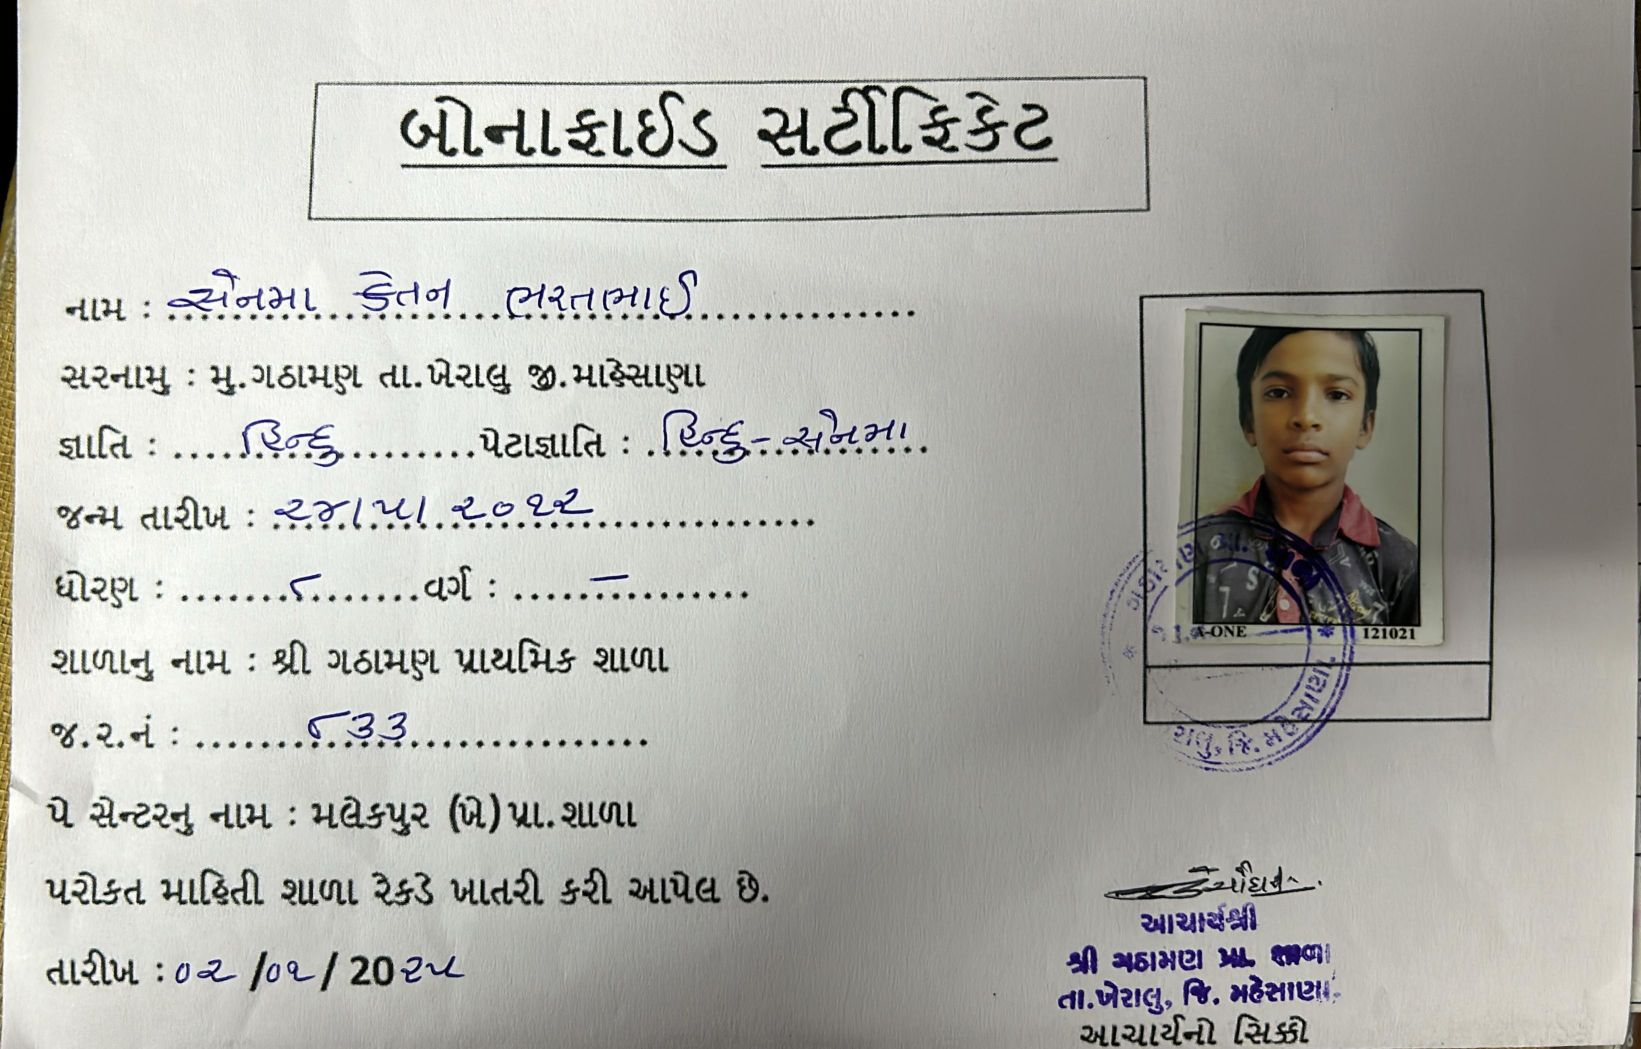 બોનાફાઈડ સર્ટીફિકેટ
નામ : સેનમા કેતન ભરતભાઈ
સરનામુ : મુ.ગઠામણ તા.ખેરાલુ જી.માહેસાણા
જ્ઞાતિ : હિન્દુ પેટાજ્ઞાતિ : હિન્દુ - સેનમા
જન્મ તારીખ : ૨૪/૫/૨૦૧૨
ધોરણ : ૮ વર્ગ : —
શાળાનુ નામ : શ્રી ગઠામણ પ્રાથમિક શાળા
જ.ર.નં : ૮૩૩
પે સેન્ટરનુ નામ : મલેકપુર (ખે) પ્રા.શાળા
પરોકત માહિતી શાળા રેકર્ડે ખાતરી કરી આપેલ છે.
તારીખ : ૦૨ /૦૧ / 20૨૫
A-ONE 121021
આચાર્યશ્રી
શ્રી ગઠામણ પ્રા. શાળા
તા.ખેરાલુ, જિ. મહેસાણા.
આચાર્યનો સિક્કો